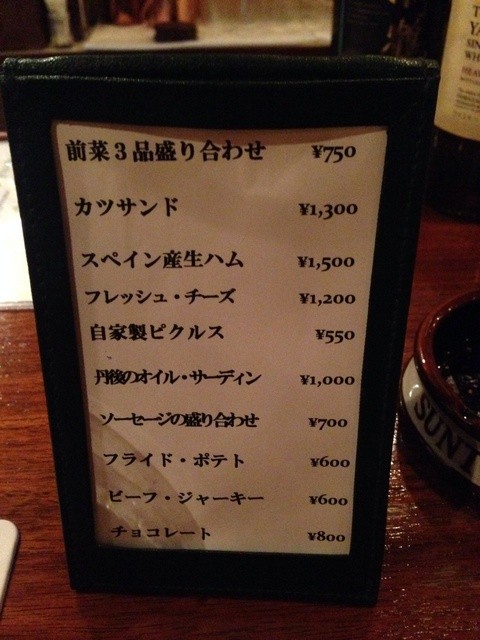 前菜３品盛り合わせ ¥750
カツサンド ¥1,300
スペイン産生ハム ¥1,500
フレッシュ・チーズ ¥1,200
自家製ピクルス ¥550
丹後のオイル・サーディン ¥1,000
ソーセージの盛り合わせ ¥700
フライド・ポテト ¥600
ビーフ・ジャーキー ¥600
チョコレート ¥800
SUNT